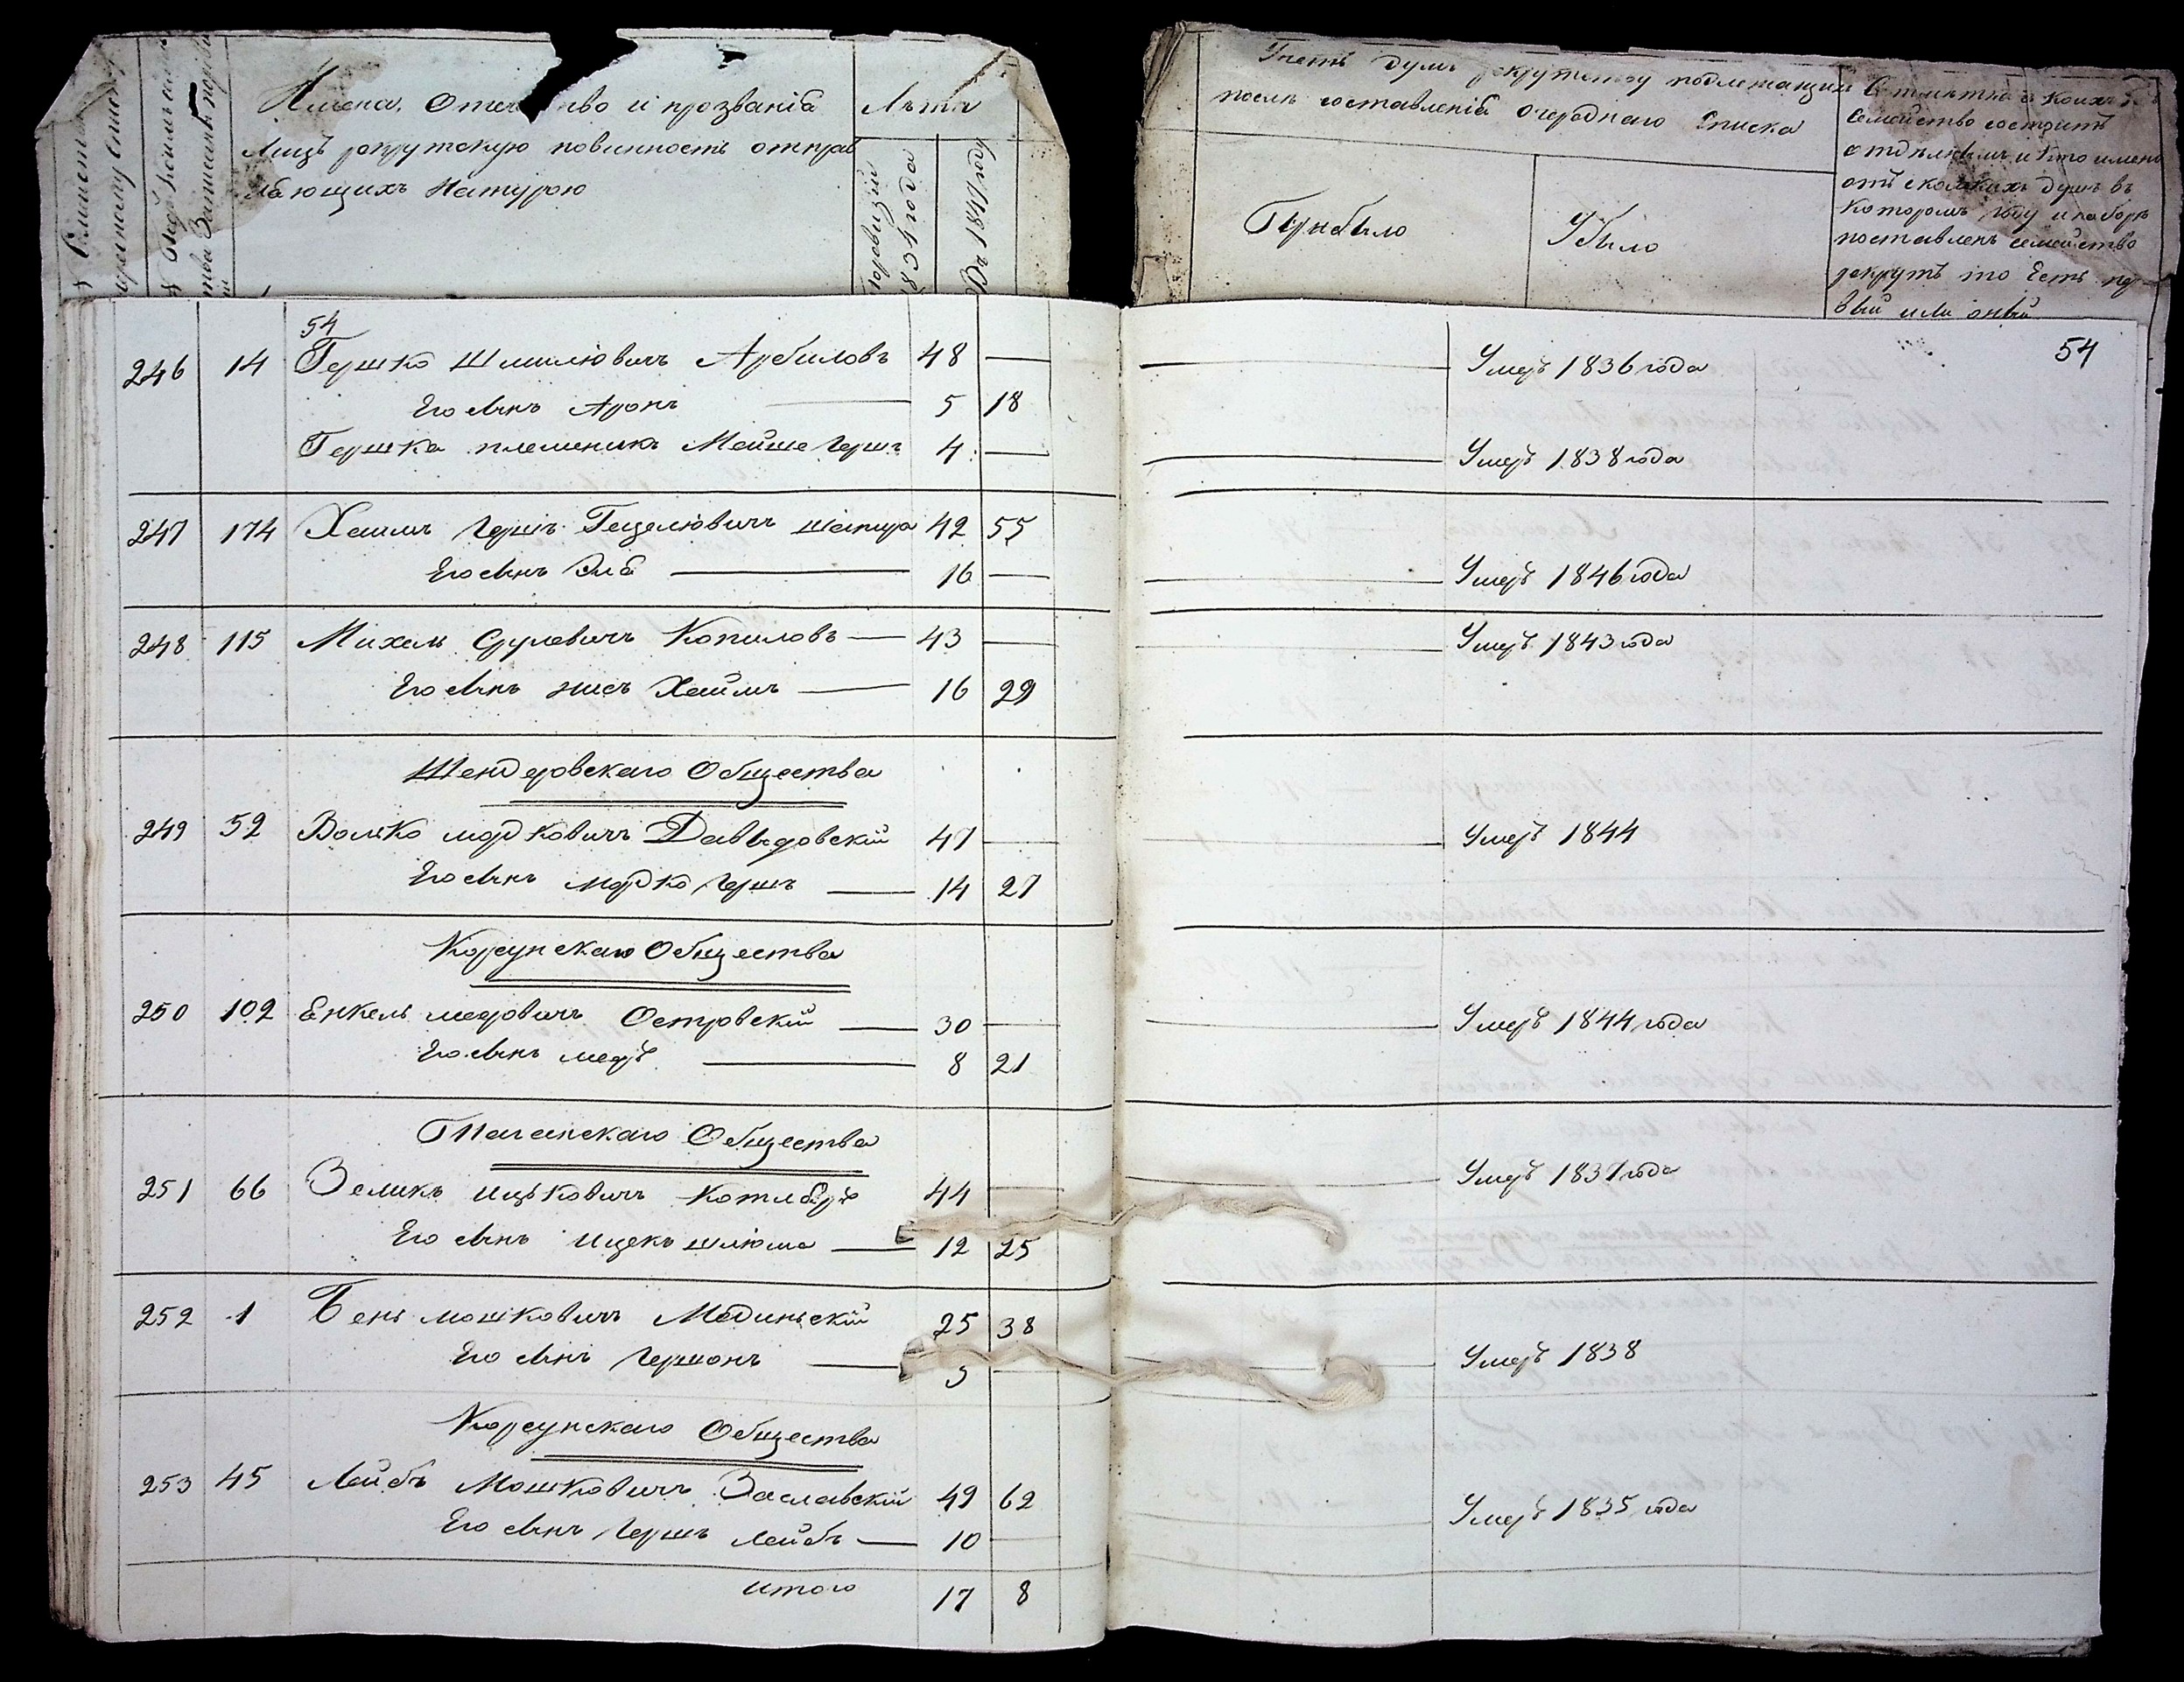 Имена, Отечество и прозванія
Лицъ рекрутскую повинность отправ
ляющихъ Натурою
Лѣта
По ревизіи
1834 года
Въ 1847 году
Учетъ душъ рекрутству подлежащихъ
послѣ составленія очереднаго Списка
Прибыло
Убыло
семейство состоитъ
отъ сколькихъ душъ въ
которомъ году и наборѣ
поставленъ семейство
рекрутъ то Есть пер
вый или оный
54
54
246 14 Гершко Шмилювичъ Арбиловъ 48 — Умеръ 1836 года
Его сынъ Аронъ 5 18
Гершка племеникъ Мейше Герш 4 — Умеръ 1838 года
247 174 Хаимъ Гершъ Гецелювичъ шапира 42 55
Его сынъ Эля 16 — Умеръ 1846 года
248 115 Михель Срулевичъ Копиловъ 43 — Умеръ 1843 года
Его сынъ Хаймъ 16 29
Шендеровскаго Общества
249 52 Волько мордковичъ Давыдовскій 47 — Умеръ 1844
Его сынъ мордко Гершъ 14 27
Корсунскаго Общества
250 102 Енкель мееровичъ Островскій 30 — Умеръ 1844 года
Его сынъ мееръ 8 21
Таганскаго Общества
251 66 Зеликъ ицьковичъ Котляръ 44 — Умеръ 1837 года
Его сынъ ицекъ шлюма 12 25
252 1 Бень мошковичъ Мединьскій 25 38
Его сынъ Гершонъ 5 — Умеръ 1838
Корсунскаго Общества
253 45 Лейбъ Мошковичъ Заславскій 49 62
Его сынъ Гершъ Лейбъ 10 — Умеръ 1835 года
итого 17 8